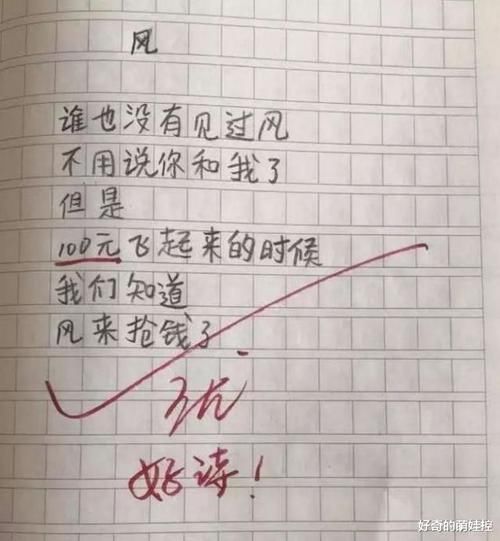 风
谁也没有见过风
不用说你和我了
但是
100元飞起来的时候
我们知道
风来抢钱了
好诗!
好奇的萌娃控